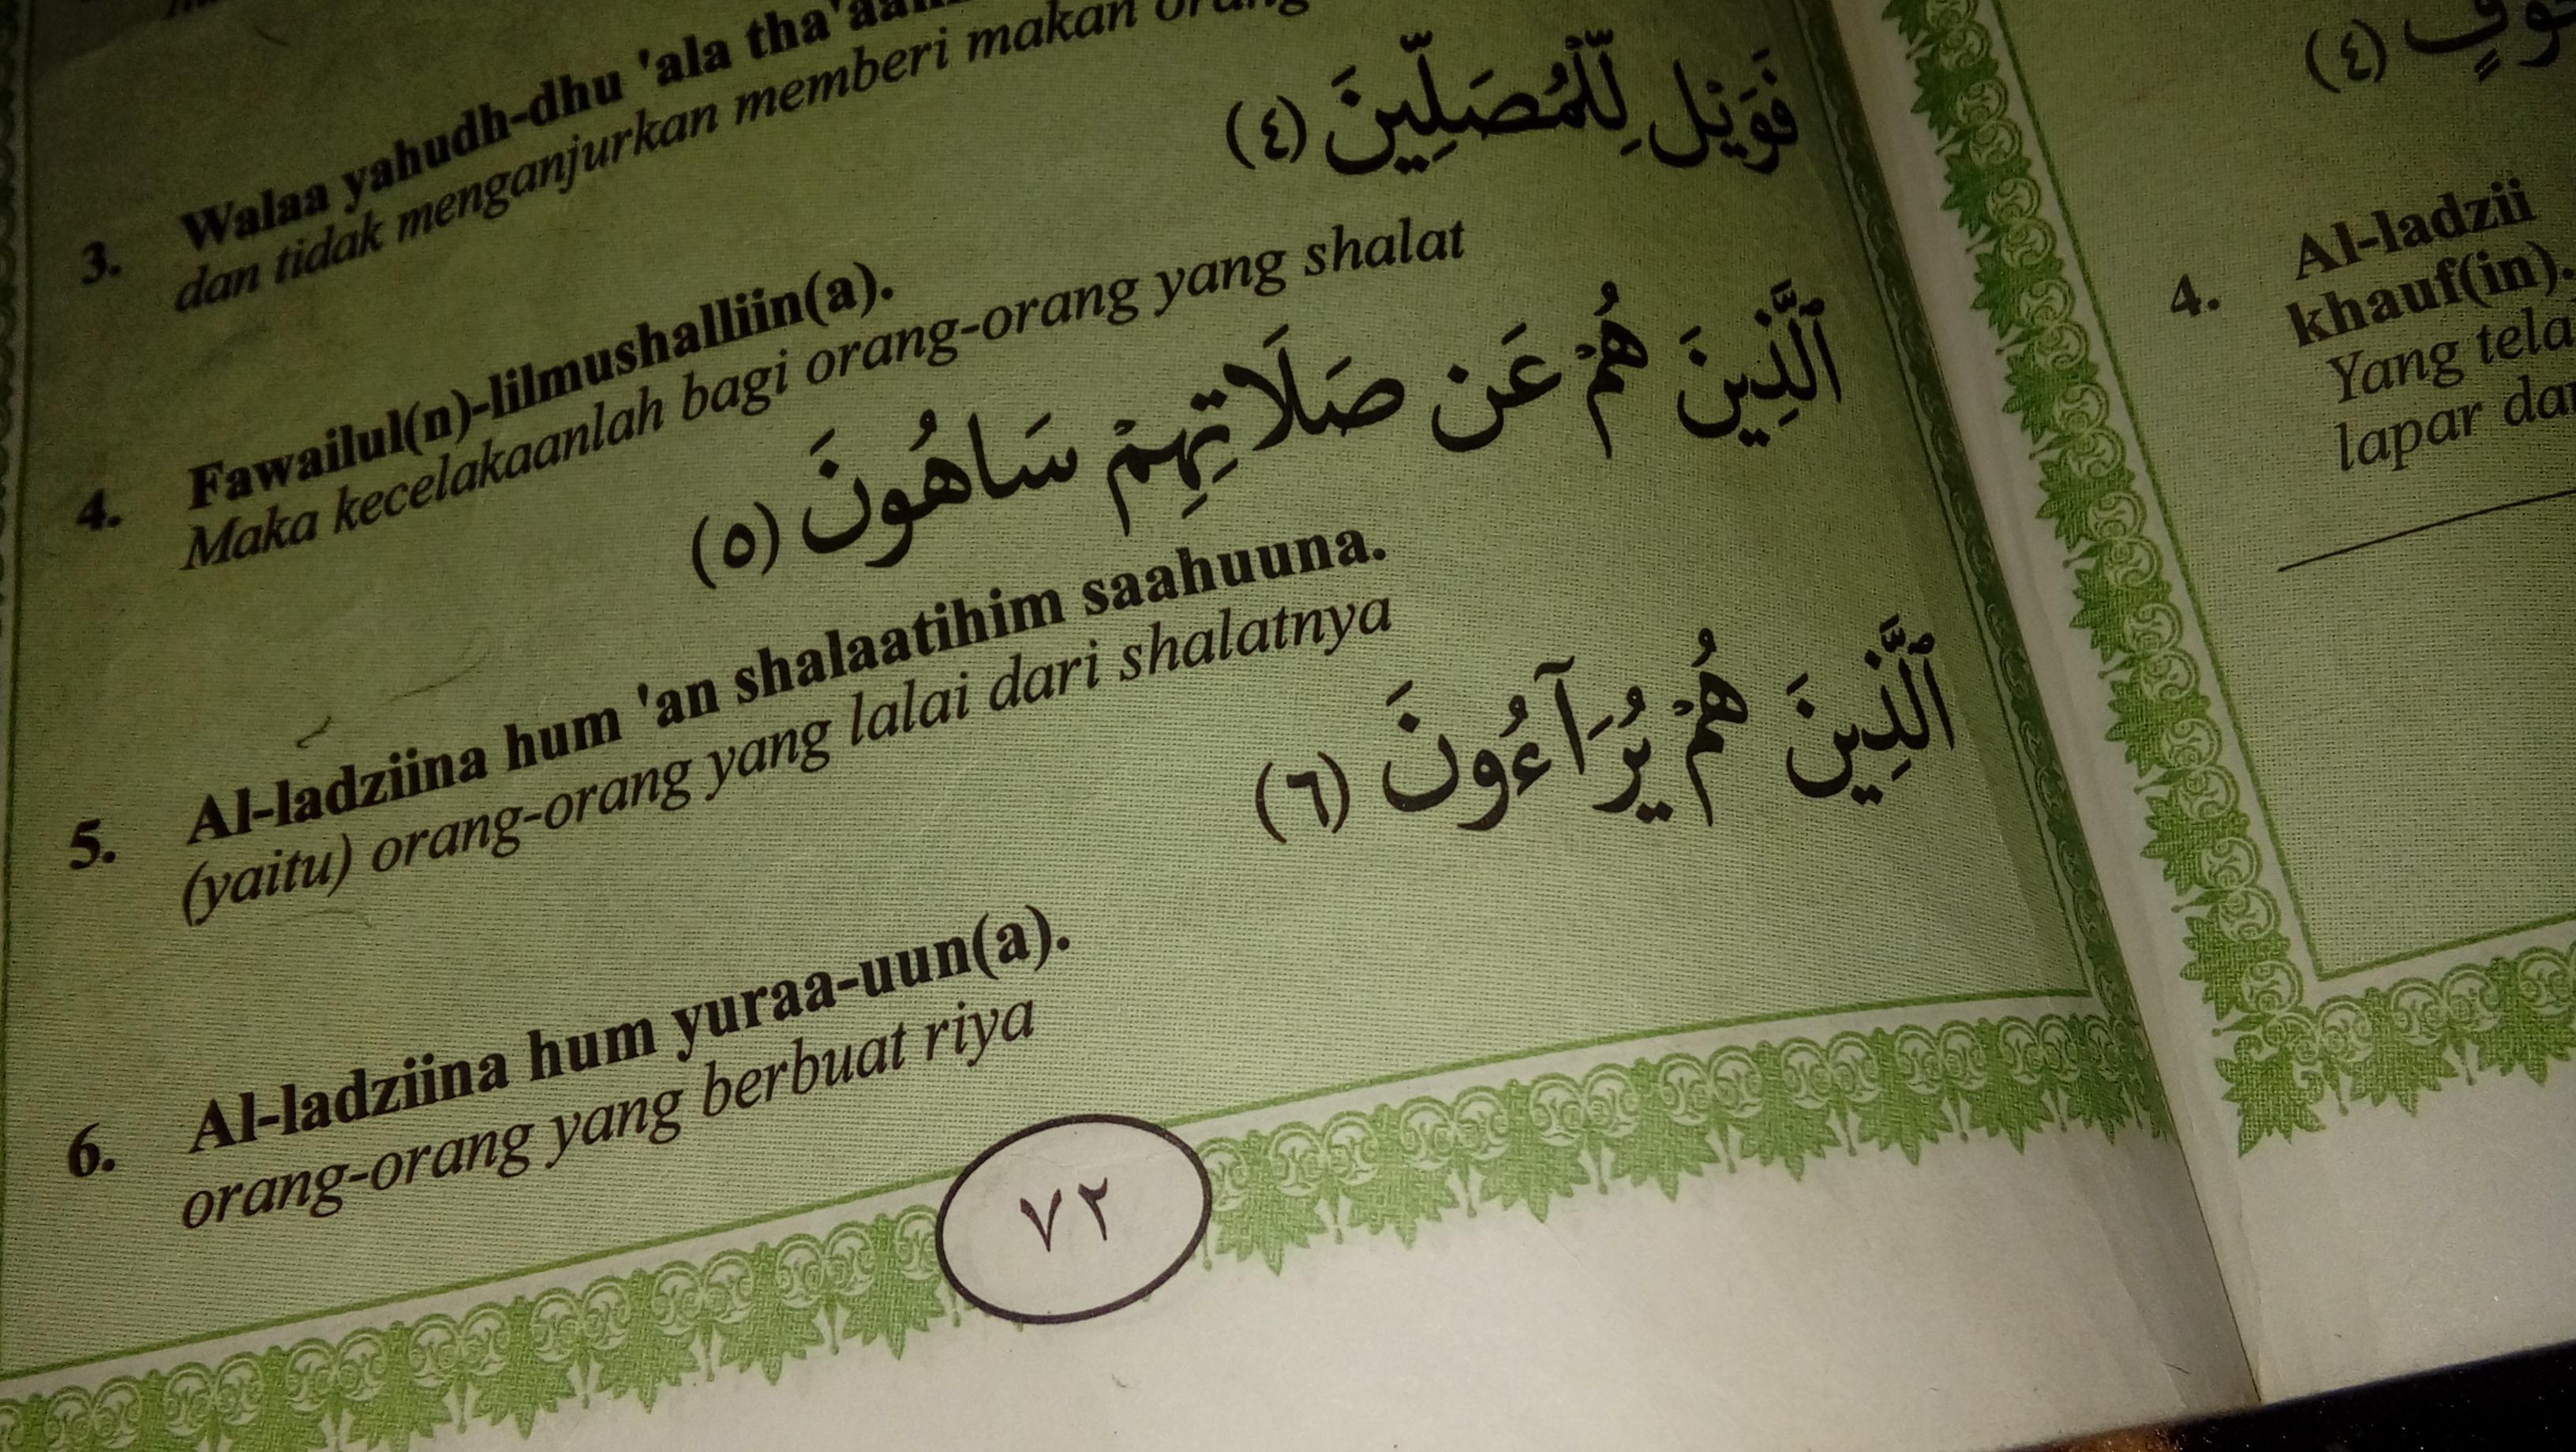 3. Walaa yahudh-dhu 'ala
dan tidak menganjurkan memberi makan
فَوَيْلٌ لِّلْمُصَلِّينَ (٤)
4. Fawailul(n)-lilmushalliin(a).
Maka kecelakaanlah bagi orang-orang yang shalat
ٱلَّذِينَ هُمْ عَن صَلَاتِهِمْ سَاهُونَ (٥)
5. Al-ladziina hum 'an shalaatihim saahuuna.
(yaitu) orang-orang yang lalai dari shalatnya
ٱلَّذِينَ هُمْ يُرَآءُونَ (٦)
6. Al-ladziina hum yuraa-uun(a).
orang-orang yang berbuat riya
٧٢
(٤)
4. Al-ladzii
khauf(in).
Yang
lapar